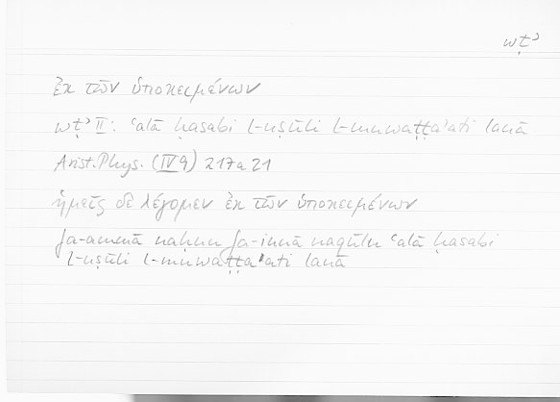 wṭʾ
ἐκ τῶν ὑποκειμένων
wṭʾ II: ʿalā ḥasabi l-uṣūli l-muwaṭṭaʾati lanā
Arist. Phys. (IV 9) 217a21
ἡμεῖς δὲ λέγομεν ἐκ τῶν ὑποκειμένων
fa-ammā naḥnu fa-innā naqūlu ʿalā ḥasabi
l-uṣūli l-muwaṭṭaʾati lanā